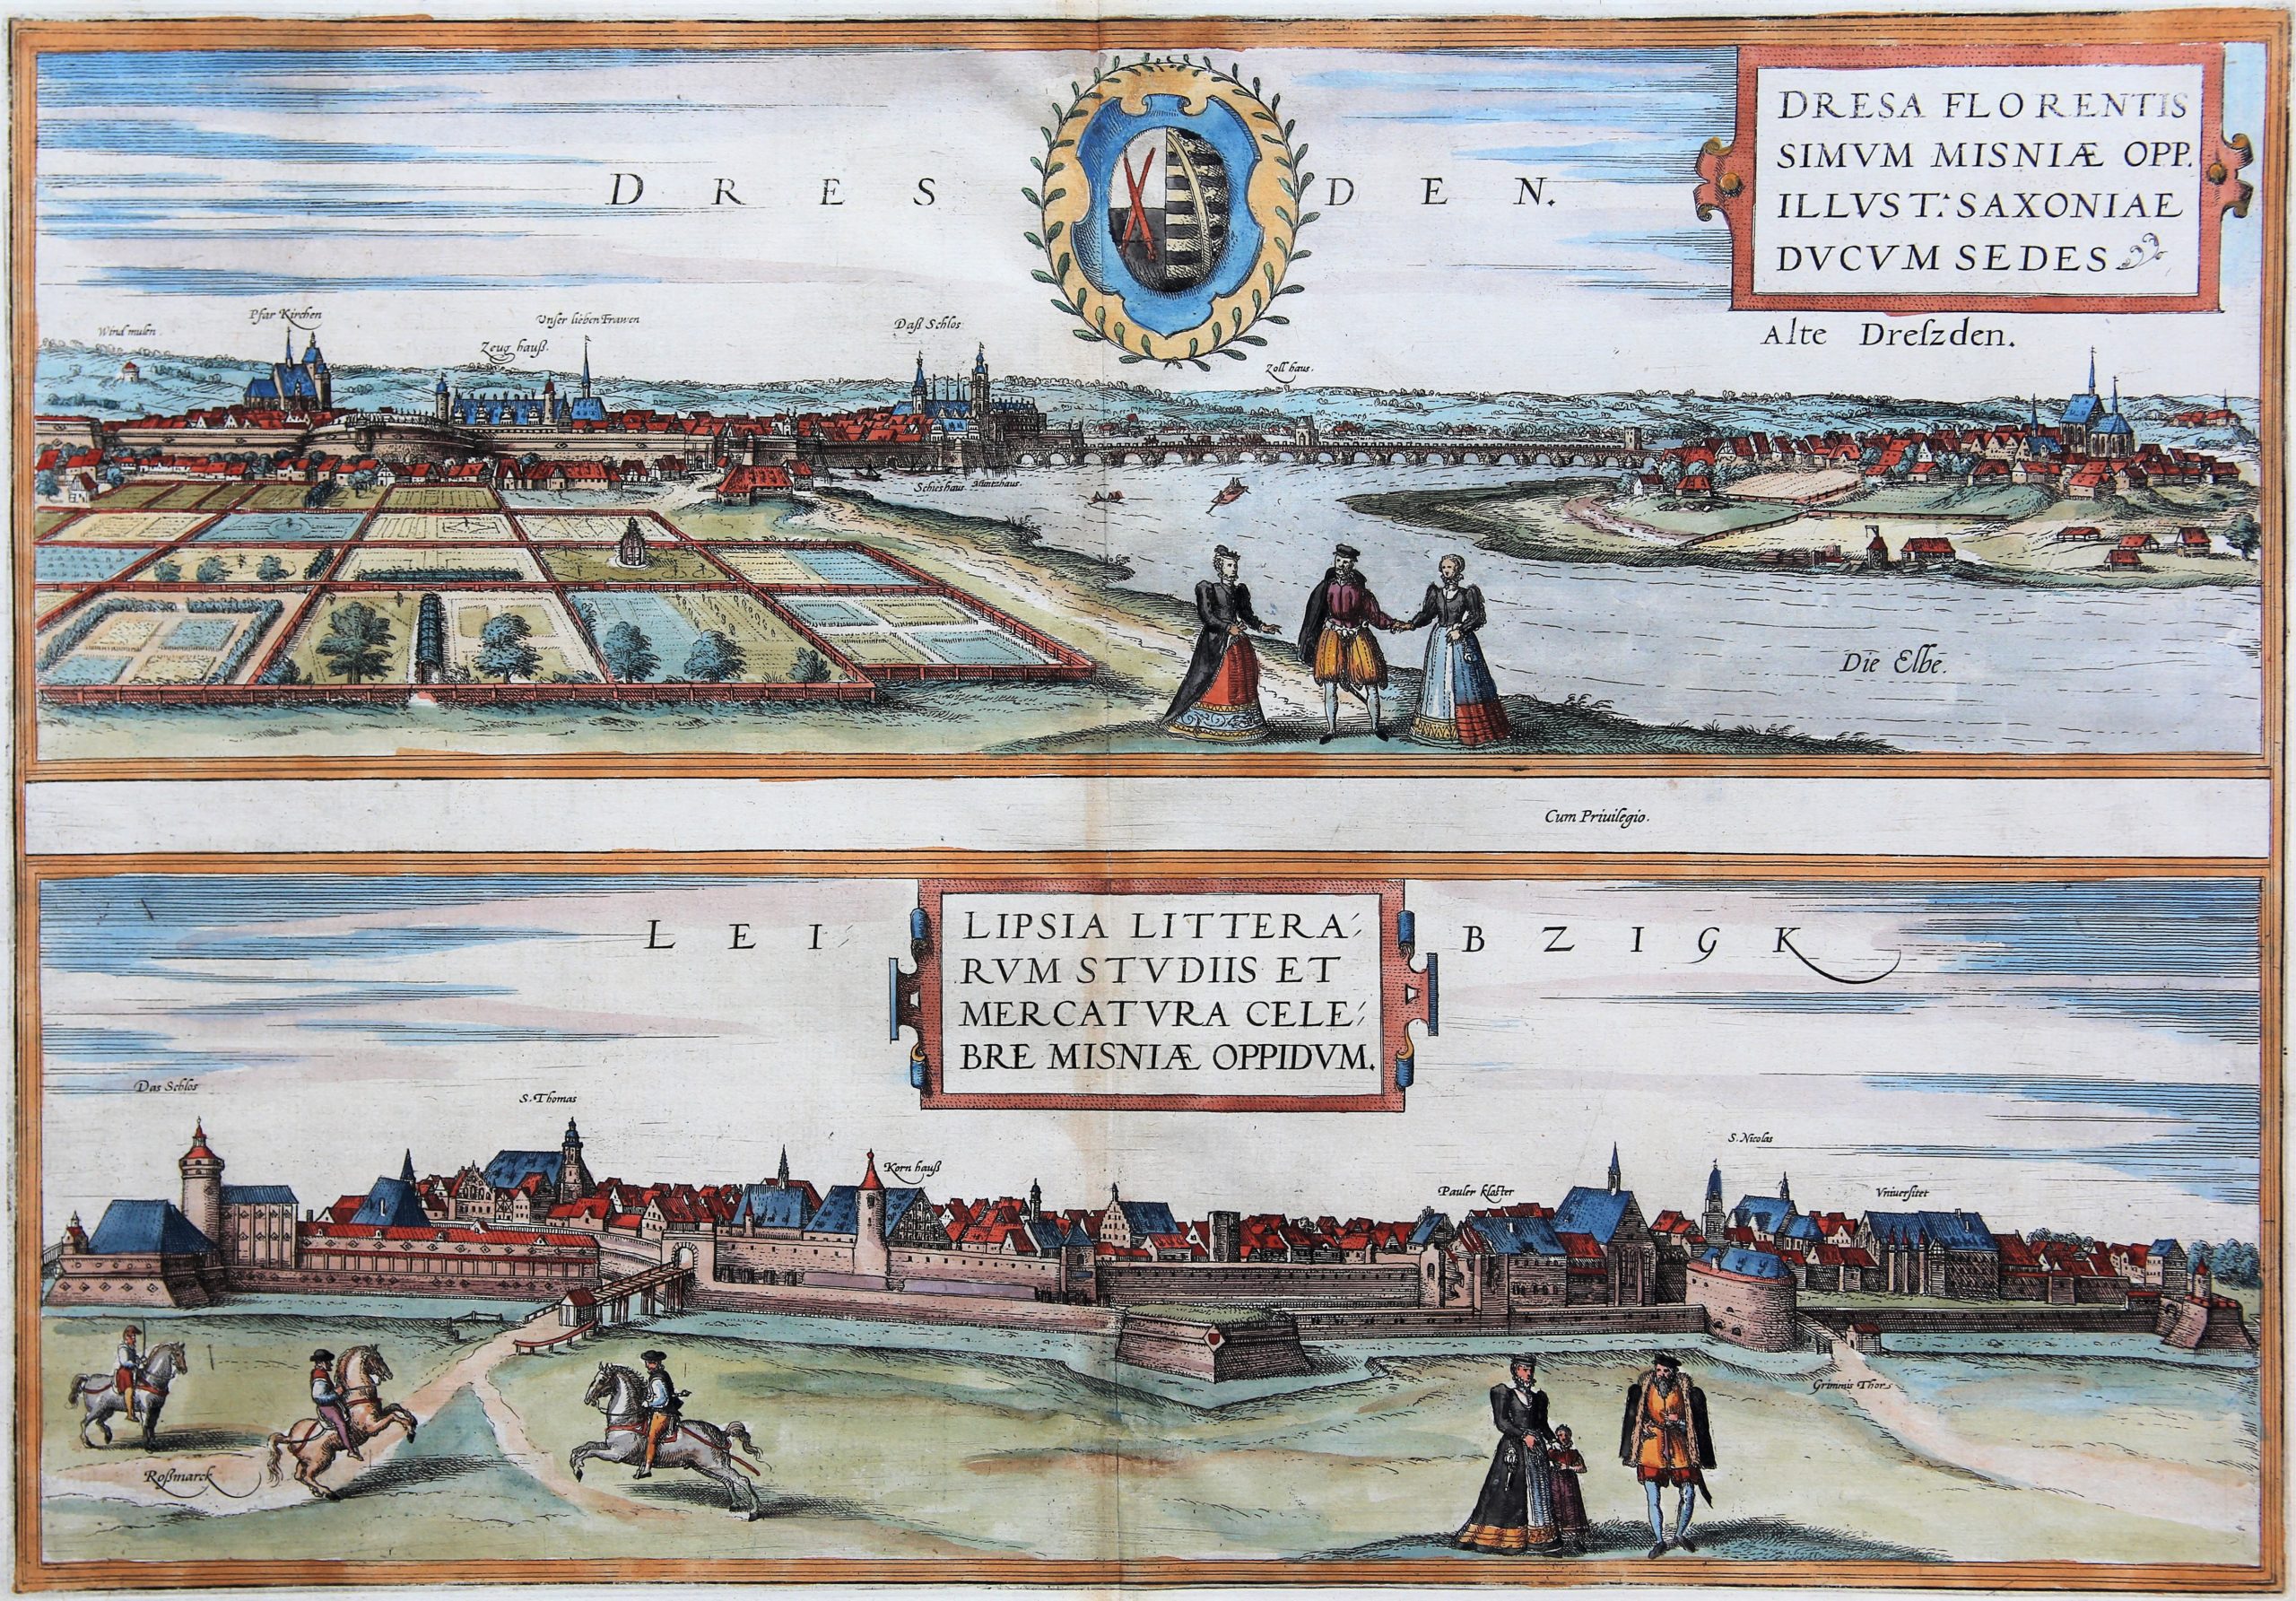 DRESDEN.
DRESA FLORENTIS
SIMVM MISNIÆ OPP.
ILLVST. SAXONIAE
DVCVM SEDES
Alte Dreſzden.
Wind mulen.
Pfar Kirchen
Zeug hauß.
Vnſer lieben Frawen
Daß Schlos
Zoll haus.
Schieshaus
Muntzhaus.
Die Elbe.
Cum Priuilegio.
LEI-BZIGK
LIPSIA LITTERA-
RVM STVDIIS ET
MERCATVRA CELE-
BRE MISNIÆ OPPIDVM.
Das Schlos
S. Thomas
Korn hauß
Pauler kloſter
S. Nicolas
Vniuerſitet
Grimmis Thor
Roßmarck